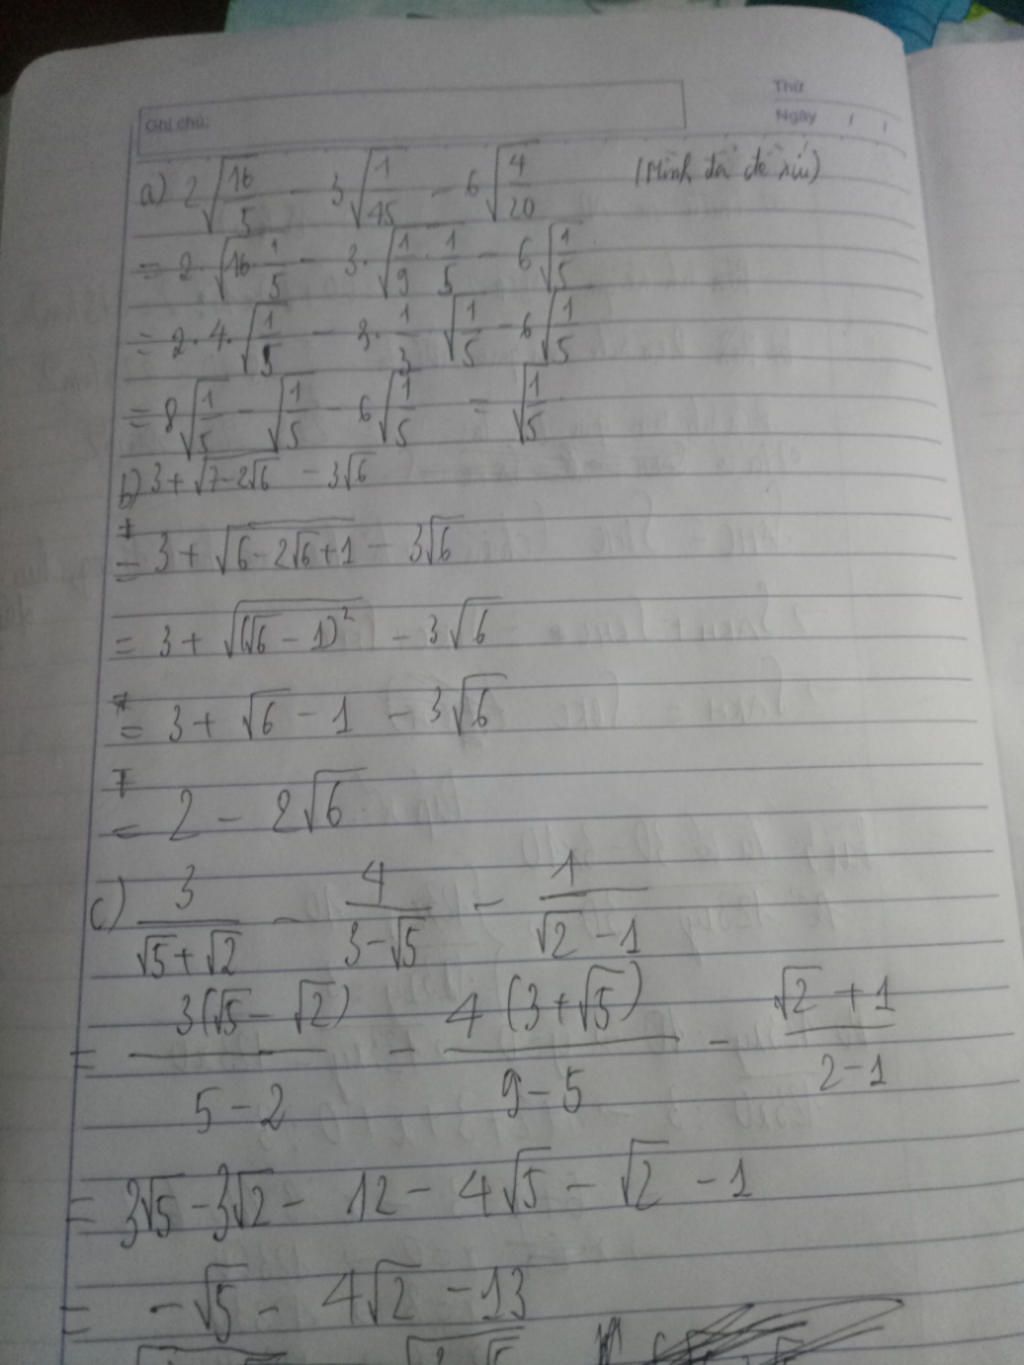 Thứ
Ghi chú:
Ngày / /
a) 2√(16/5) - 3√(1/45) - 6√(4/20) (Mình
= 2.√(16.1/5) - 3.√(1/9.1/5) - 6√(1/5)
= 2.4.√(1/5) - 3.1/3 √(1/5) - 6√(1/5)
= 8√(1/5) - √(1/5) - 6√(1/5) = √(1/5)
b) 3+√(7-2√6) - 3√6
= 3 + √(6-2√6+1) - 3√6
= 3 + √((√6-1)²) - 3√6
= 3 + √6 - 1 - 3√6
= 2 - 2√6
c) 3/(√5+√2) - 4/(3-√5) - 1/(√2-1)
= 3(√5-√2)/(5-2) - 4(3+√5)/(9-5) - (√2+1)/(2-1)
= 3√5 - 3√2 - 12 - 4√5 - √2 - 1
= -√5 - 4√2 - 13